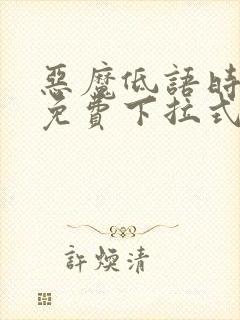 惡魔低語時
免費下拉式
許煥清